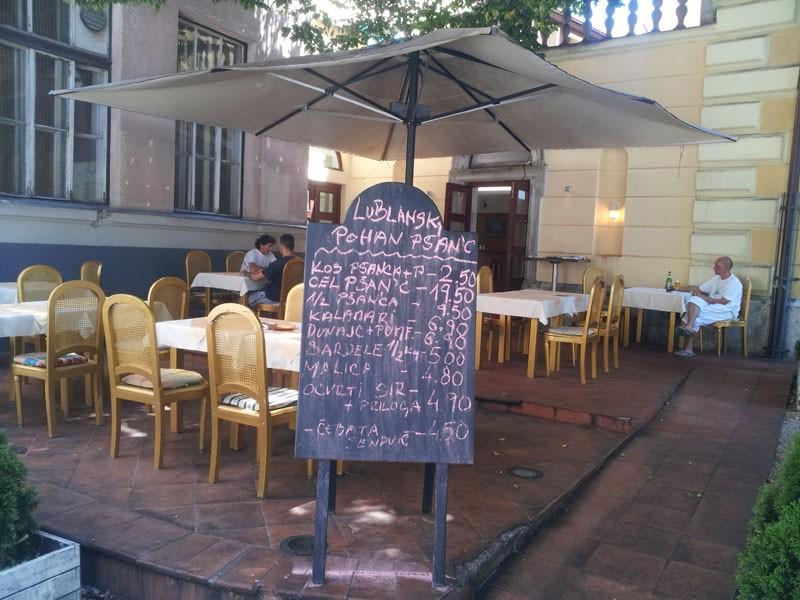 LUBLANSKI
POHAN PSANC
KOS PSANCA+P - 2.50
CEL PSANIC - 19.50
1/2 PSANCA - 9.50
KALAMARI - 6.90
DUNAJC+POMF. - 6.90
SARDELE 1/2 kg - 5.00
MALICA - 4.80
OCVRTI SIR -
+ PRILOGA 4.90
- ČEBATA
SENDVIČ - 4,50